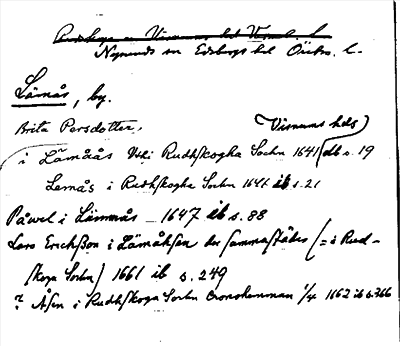 Rudskoga sn Visnums hd Värml. l.
Nysunds sn Edsbergs hd Örebro l.
Lämås, by.
Brita Persdotter,
Visnums hds)
i Lämåås Uthi Rudhskogha Sochn 1641 (db s. 19
Lemås i Rudhskogha Sochn 1641 ib s. 21
Påwel i Lämmås — 1647 ib s. 88
Lars Erichsson i Lämåhsen der sammastädes (= i Rud-
skoga Sochn) 1661 ib s. 249
? Åsen i Rudhskoga Sochn Cronohemman 1/4 1662 ib s. 366